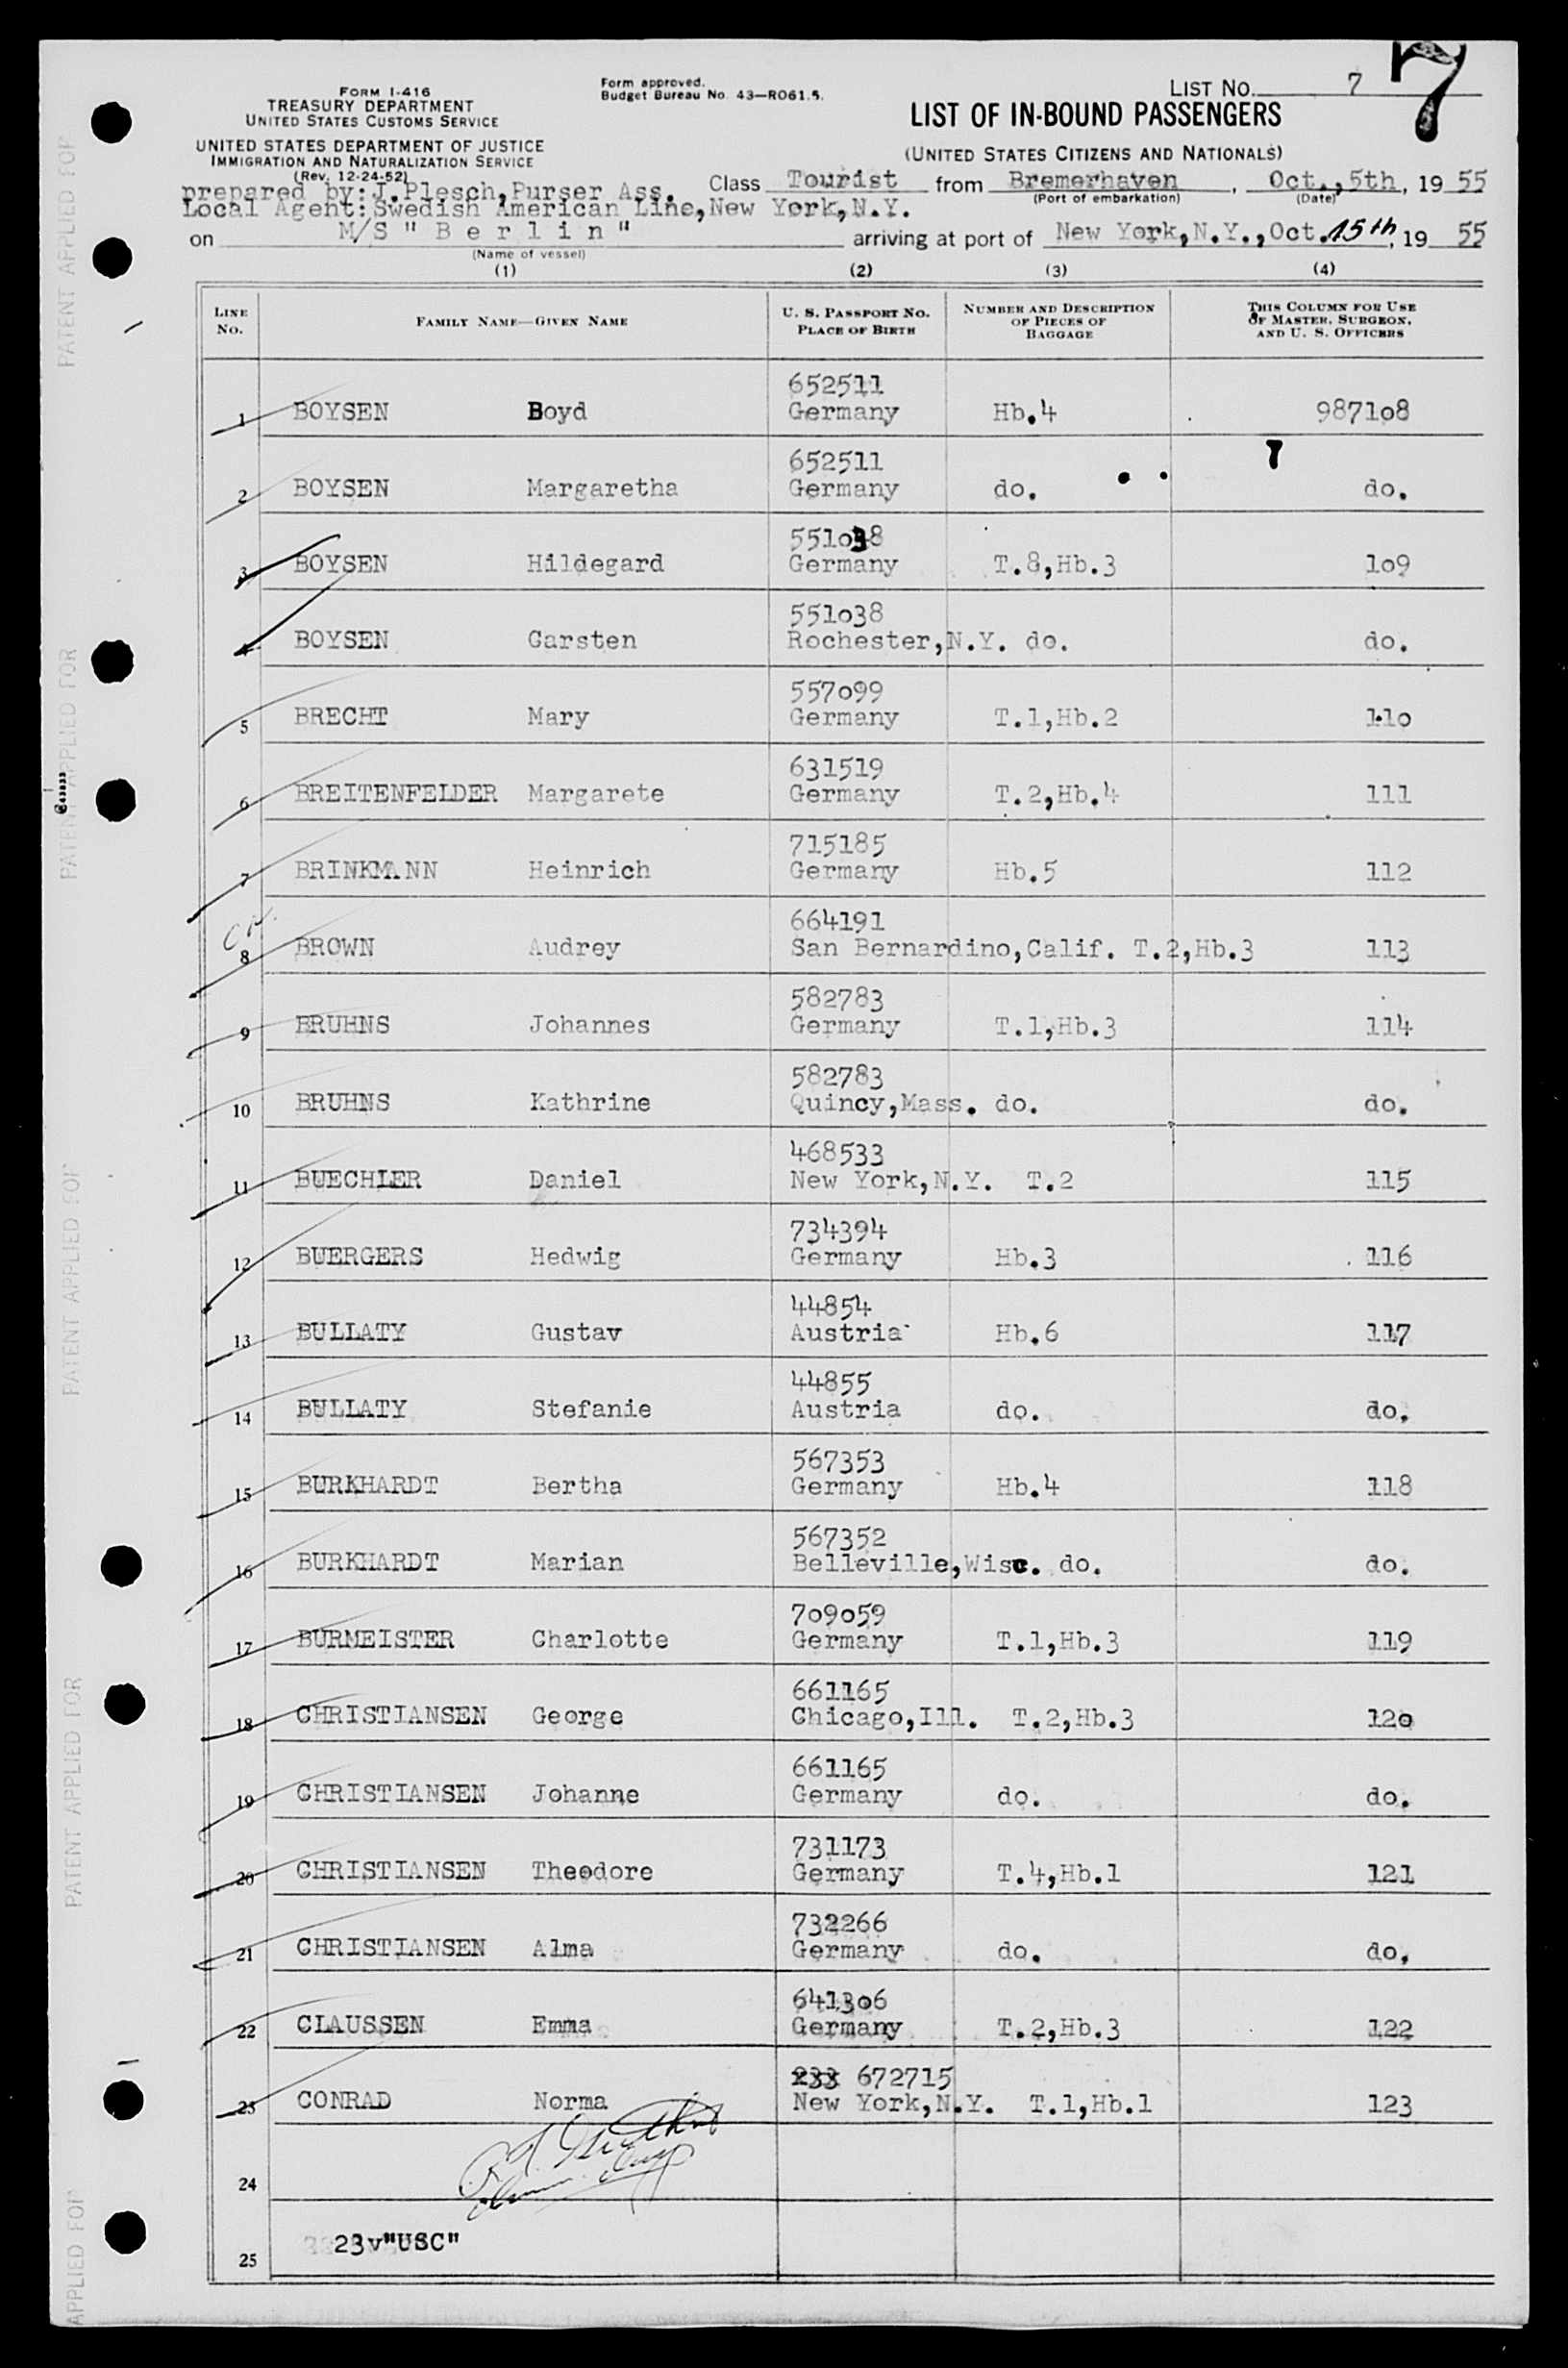 FORM I-416
TREASURY DEPARTMENT
UNITED STATES CUSTOMS SERVICE
UNITED STATES DEPARTMENT OF JUSTICE
IMMIGRATION AND NATURALIZATION SERVICE
(Rev. 12-24-52)
Form approved.
Budget Bureau No. 43—RO61.5.
LIST No. 7
7
LIST OF IN-BOUND PASSENGERS
(UNITED STATES CITIZENS AND NATIONALS)
prepared by:J.Plesch,Purser Ass. Class Tourist from Bremerhaven, Oct.,5th, 19 55
(Port of embarkation) (Date)
Local Agent:Swedish American Line,New York,N.Y.
on M/S " B e r l i n " arriving at port of New York,N.Y.,Oct.15th, 19 55
(Name of vessel)
(1) (2) (3) (4)
LINE No. FAMILY NAME—GIVEN NAME U. S. PASSPORT No. PLACE OF BIRTH NUMBER AND DESCRIPTION OF PIECES OF BAGGAGE THIS COLUMN FOR USE OF MASTER, SURGEON, AND U. S. OFFICERS
652511
1 BOYSEN Boyd Germany Hb.4 987108
652511
2 BOYSEN Margaretha Germany do. do.
551038
3 BOYSEN Hildegard Germany T.8,Hb.3 109
551038
4 BOYSEN Garsten Rochester,N.Y. do. do.
557099
5 BRECHT Mary Germany T.1,Hb.2 110
631519
6 BREITENFELDER Margarete Germany T.2,Hb.4 111
715185
7 BRINKMANN Heinrich Germany Hb.5 112
664191
8 BROWN Audrey San Bernardino,Calif. T.2,Hb.3 113
582783
9 BRUHNS Johannes Germany T.1,Hb.3 114
582783
10 BRUHNS Kathrine Quincy,Mass. do. do.
468533
11 BUECHLER Daniel New York,N.Y. T.2 115
734394
12 BUERGERS Hedwig Germany Hb.3 116
44854
13 BULLATY Gustav Austria Hb.6 117
44855
14 BULLATY Stefanie Austria do. do.
567353
15 BURKHARDT Bertha Germany Hb.4 118
567352
16 BURKHARDT Marian Belleville,Wisc. do. do.
709059
17 BURMEISTER Charlotte Germany T.1,Hb.3 119
661165
18 CHRISTIANSEN George Chicago,Ill. T.2,Hb.3 120
661165
19 CHRISTIANSEN Johanne Germany do. do.
731173
20 CHRISTIANSEN Theodore Germany T.4,Hb.1 121
732266
21 CHRISTIANSEN Alma Germany do. do.
641306
22 CLAUSSEN Emma Germany T.2,Hb.3 122
672715
23 CONRAD Norma New York,N.Y. T.1,Hb.1 123
24
25 23v"USC"
PATENT APPLIED FOR
PATENT APPLIED FOR
PATENT APPLIED FOR
PATENT APPLIED FOR
APPLIED FOR